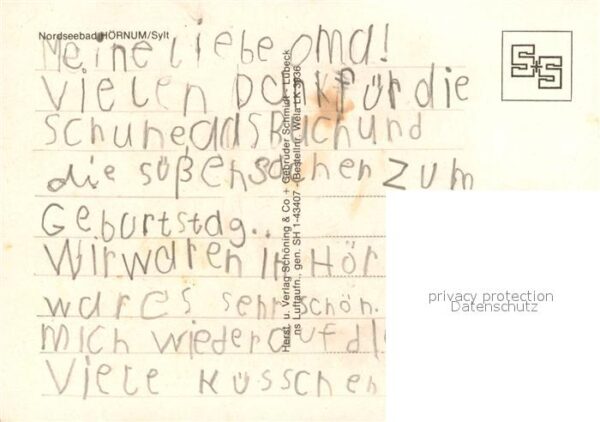 Nordseebad HÖRNUM/Sylt
Meine liebe Oma!
Vielen Dank für die
Schuhe das Buch und
die süßen sachen zum
Geburtstag..
Wir waren in Hör
war es sehr schön.
Mich wieder auf di
Viele Küsschen
Herst. u. Verlag Schöning & Co + Gebrüder Schmidt - Lübeck
ns Luftaufn., gen. SH 1-43407 - (Bestellnr. Wela LK 3036
S+S
privacy protection
Datenschutz